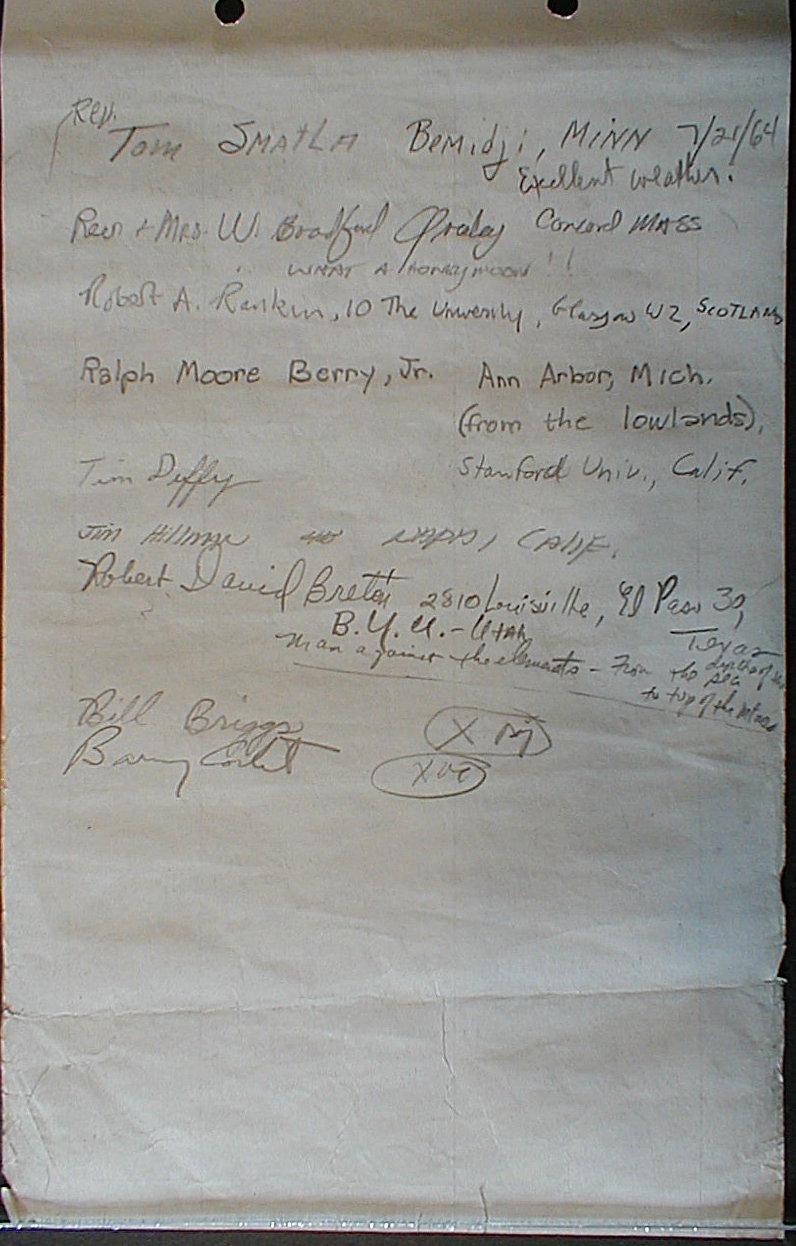 Rev.
Tom SMATLA Bemidji, MINN 7/21/64
Excellent weather.
Rev + Mrs. W. Bradford Concord MASS
WHAT A HONEYMOON!!
Robert A. Rankin, 10 The University, Glasgow W2, SCOTLAND
Ralph Moore Berry, Jr. Ann Arbor, Mich.
(from the lowlands),
Tim Duffy Stanford Univ., Calif.
Jim CALIF.
Robert David Breton 2810 Louisville, El Paso 30,
B.Y.U. - Utah Texas
Man against the elements - From the depths of the sea
to top of the
Bill Briggs
Barry Corbet